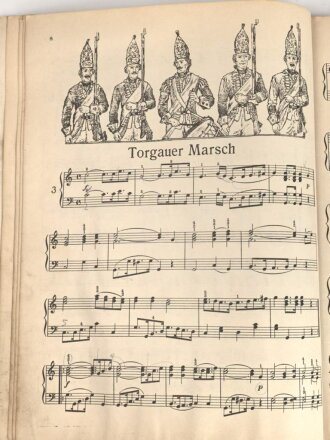 8
Torgauer Marsch
3
p
f
p